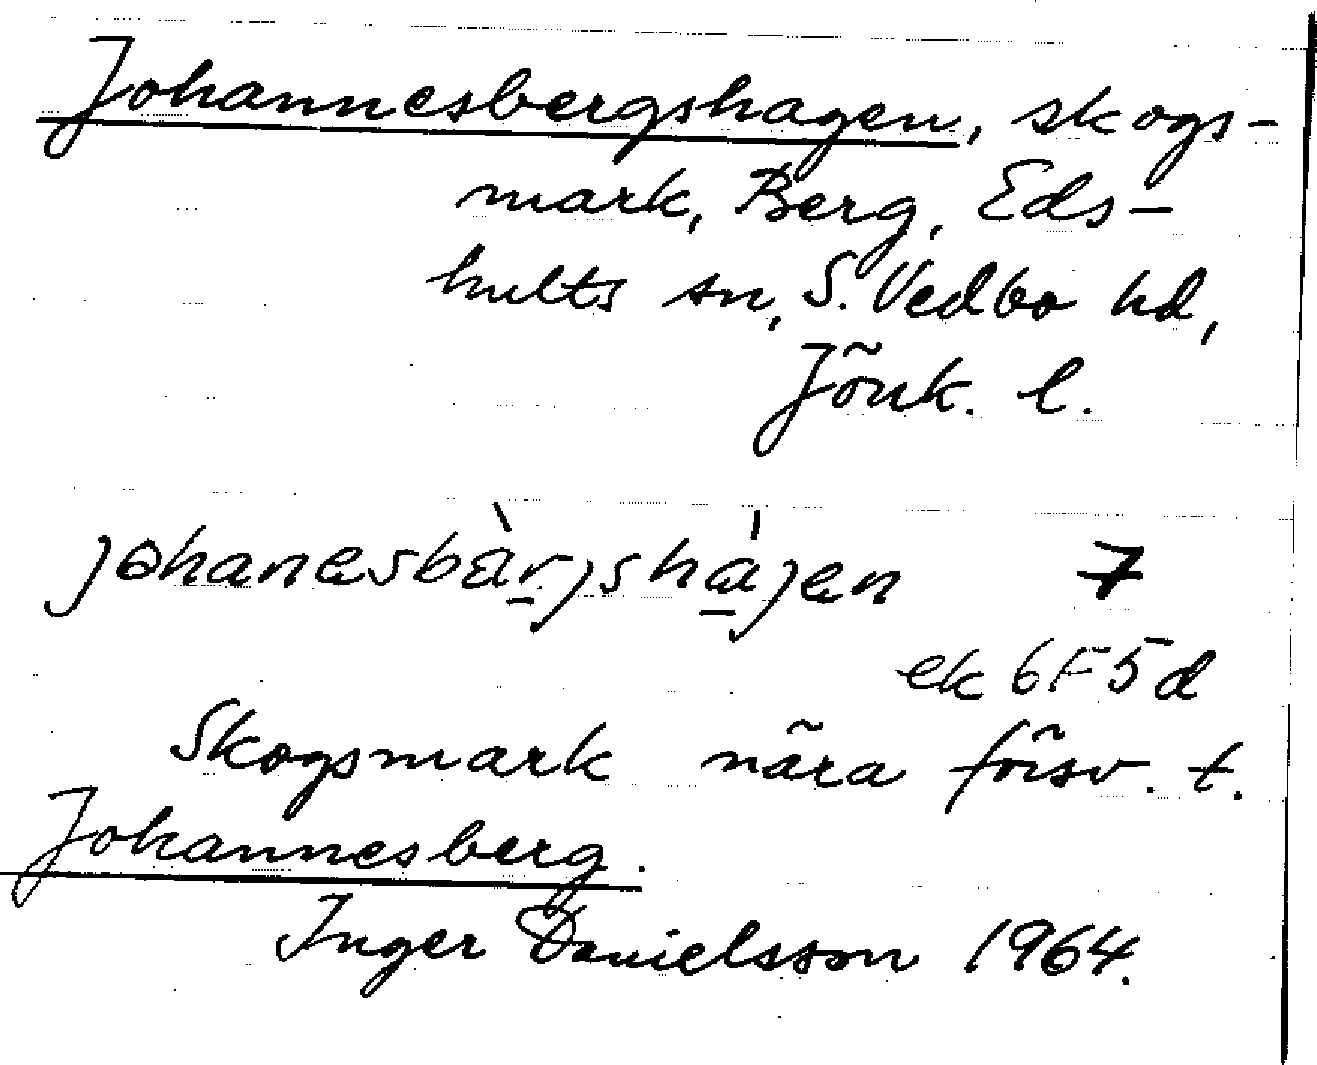 Johannesbergshagen, skogs-
mark, Berg, Eds-
hults sn, S. Vedbo hd,
Jönk. l.
johanesbàrjshájen 7
ek 6F5d
Skogsmark nära försv. t.
Johannesberg.
Inger Danielsson 1964.